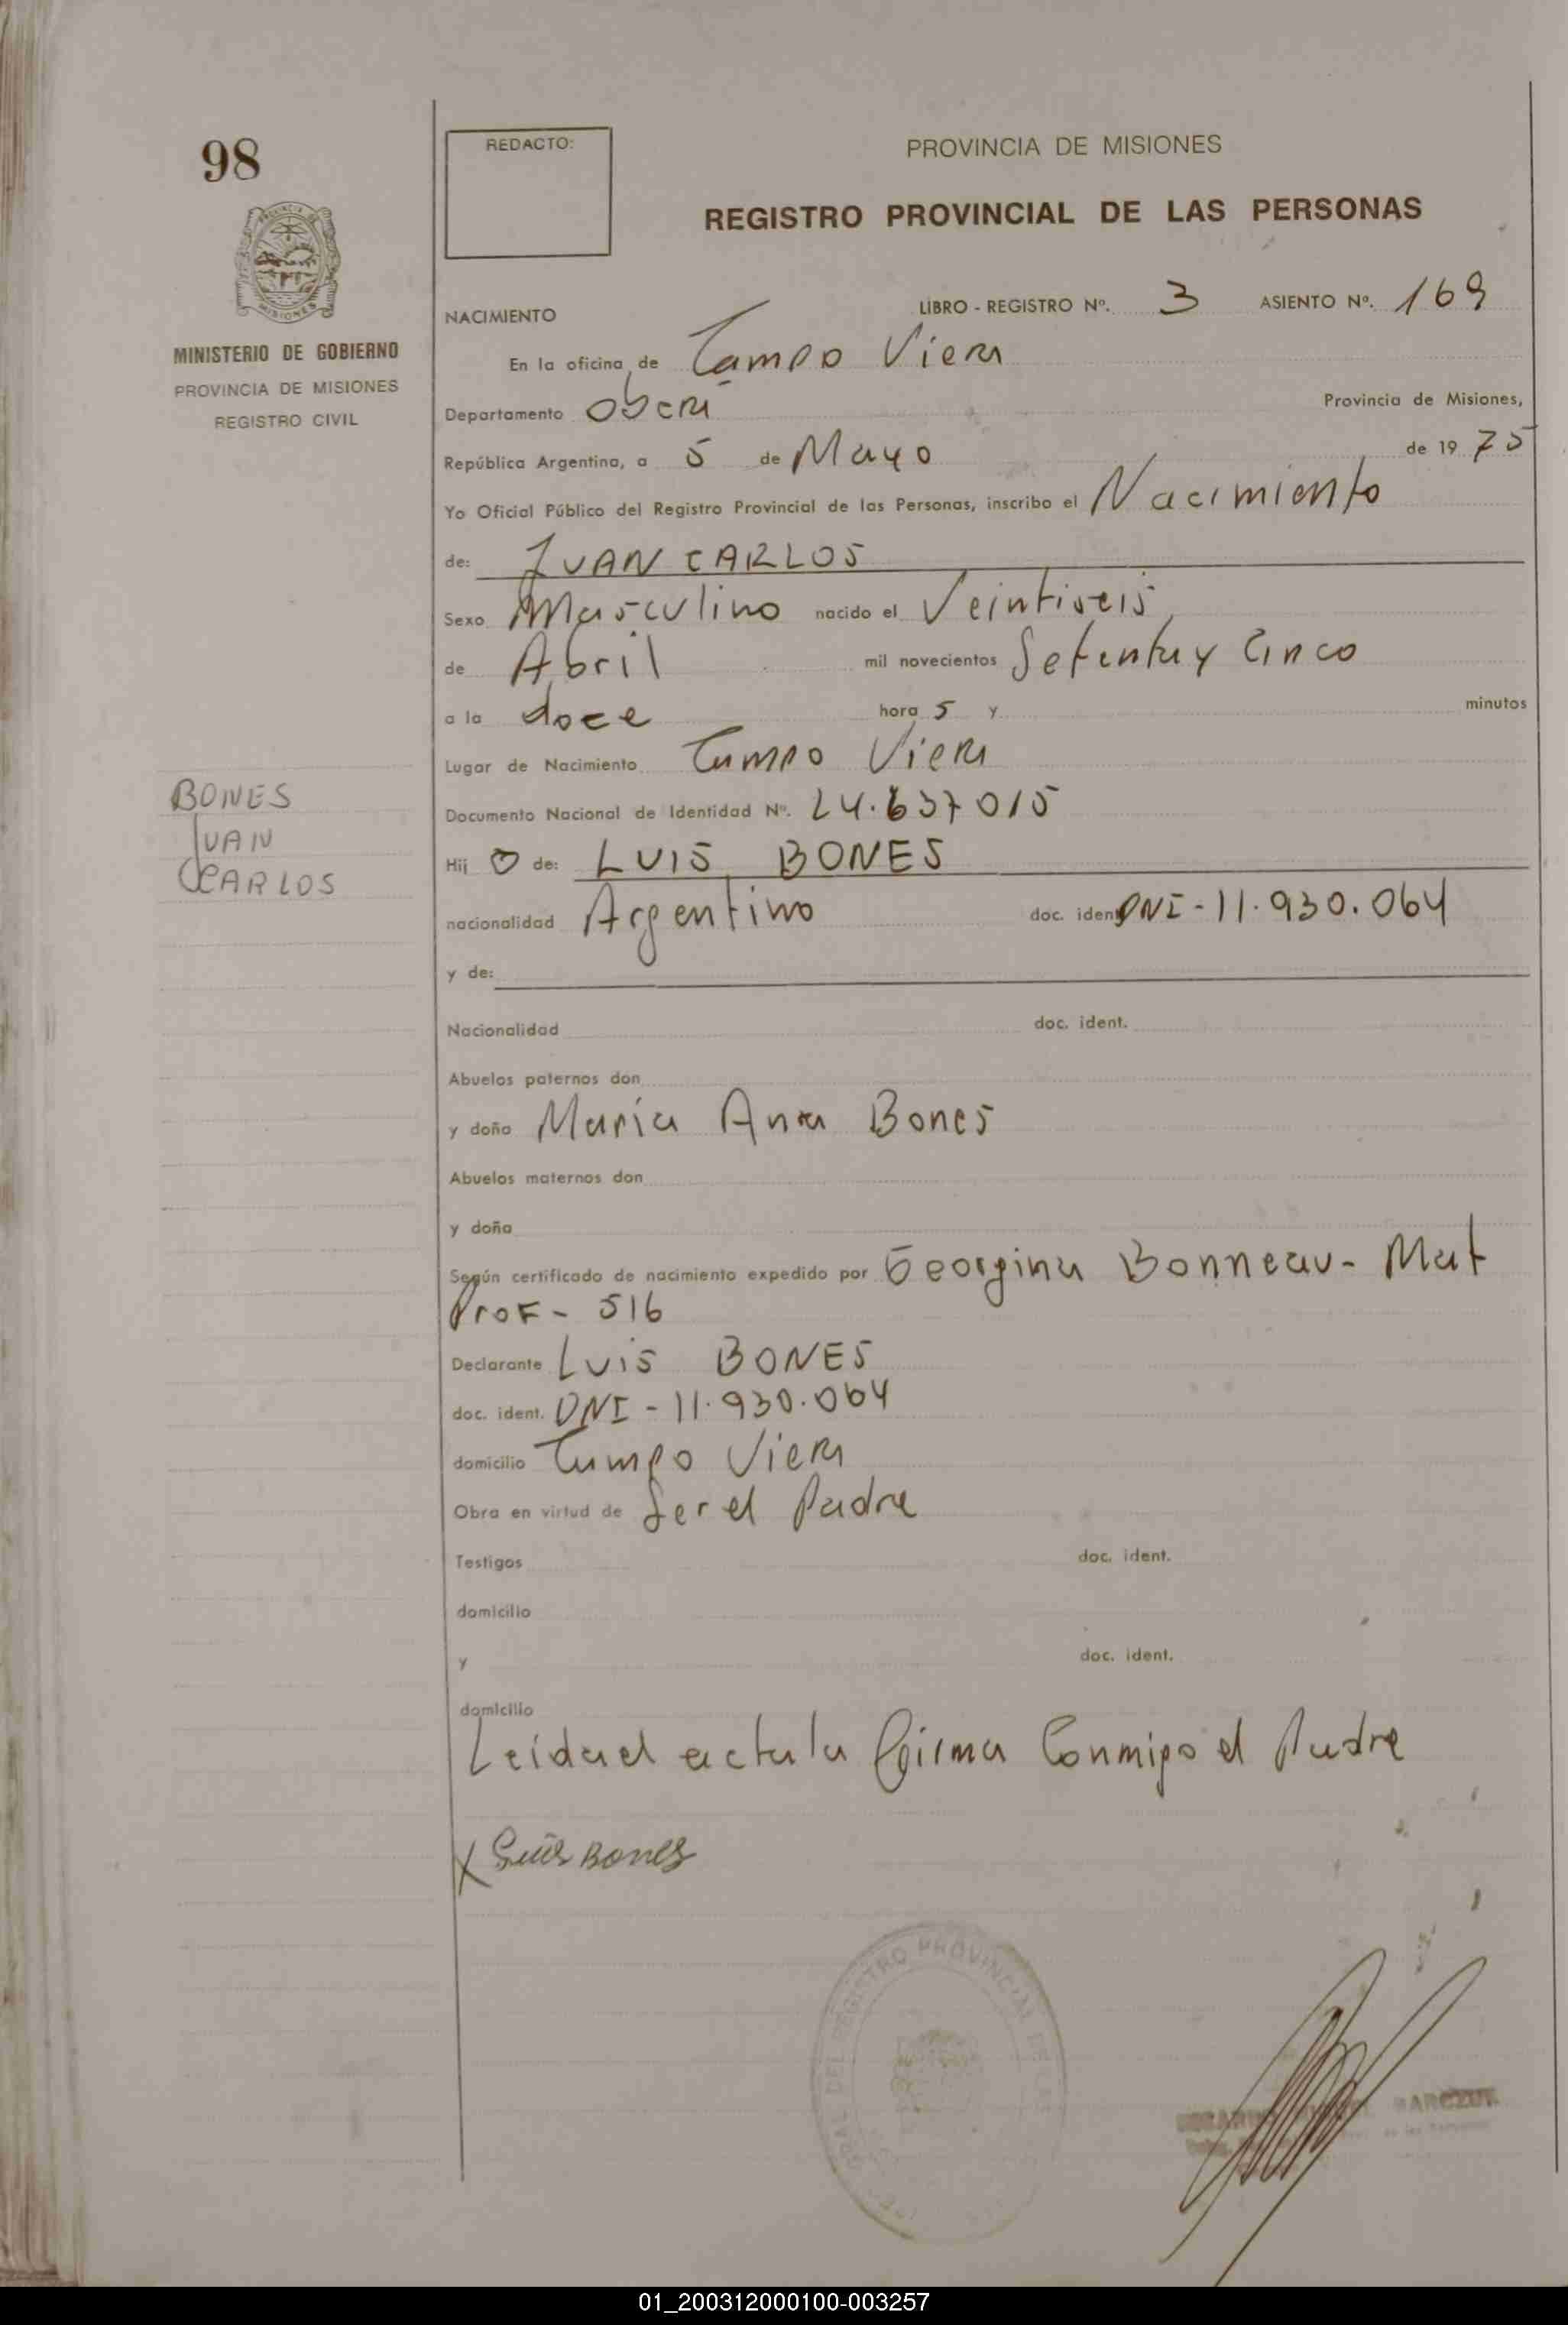 98
REDACTO:
PROVINCIA DE MISIONES
REGISTRO PROVINCIAL DE LAS PERSONAS
MINISTERIO DE GOBIERNO
PROVINCIA DE MISIONES
REGISTRO CIVIL
NACIMIENTO LIBRO - REGISTRO Nº. 3 ASIENTO Nº. 169
En la oficina de Campo Viera
Departamento Oberá Provincia de Misiones,
República Argentina, a 5 de Mayo de 1975
Yo Oficial Público del Registro Provincial de las Personas, inscribo el Nacimiento
de: JUAN CARLOS
Sexo Masculino nacido el Veintiseis
de Abril mil novecientos Setenta y Cinco
a la doce hora s y minutos
Lugar de Nacimiento Campo Viera
BONES
JUAN
CARLOS
Documento Nacional de Identidad Nº. 24.637015
Hij O de: LUIS BONES
nacionalidad Argentino doc. ident DNI - 11.930.064
y de:
Nacionalidad doc. ident.
Abuelos paternos don
y doña María Ana Bones
Abuelos maternos don
y doña
Según certificado de nacimiento expedido por Georgina Bonneau - Mat
Prof - 516
Declarante Luis BONES
doc. ident. DNI - 11.930.064
domicilio Campo Viera
Obra en virtud de Ser el Padre
Testigos doc. ident.
domicilio
y doc. ident.
domicilio
Leida el acta la firma Conmigo el Padre
X Luis Bones
DEL REGISTRO PROVINCIAL DE LAS
01_200312000100-003257